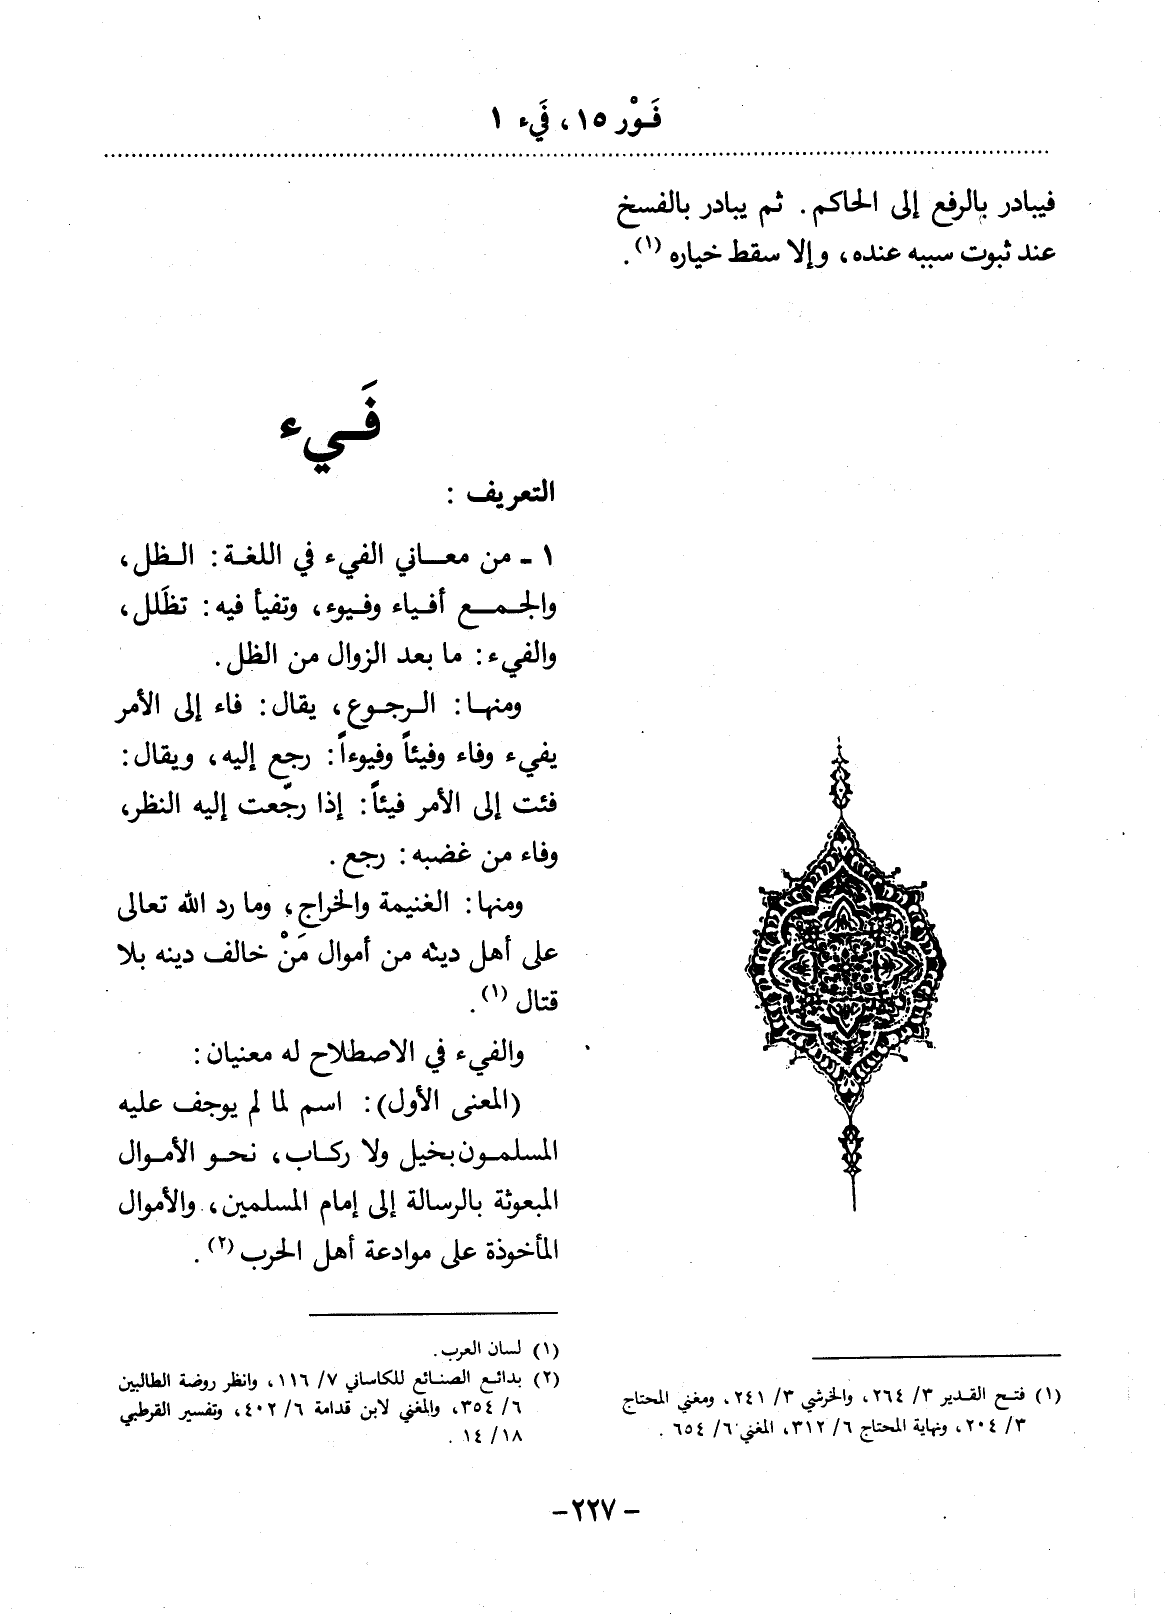 فَـوْر ١٥، فَيء ١
فيبادر بالرفع إلى الحاكم. ثم يبادر بالفسخ
عند ثبوت سببه عنده، وإلا سقط خياره (١).
(١) فتح القدير ٣/ ٢٦٤، والخرشي ٣/ ٢٤١، ومغني المحتاج
٣/ ٢٠٤، ونهاية المحتاج ٦/ ٣١٢، المغني ٦/ ٦٥٤.
فَـيء
التعريف:
١ ـ من معاني الفيء في اللغة: الظل،
والجمع أفياء وفيوء، وتفيأ فيه: تظَلل،
والفيء: ما بعد الزوال من الظل.
ومنها: الرجوع، يقال: فاء إلى الأمر
يفيء وفاء وفيئاً وفيوءاً: رجع إليه، ويقال:
فئت إلى الأمر فيئاً: إذا رجّعت إليه النظر،
وفاء من غضبه: رجع.
ومنها: الغنيمة والخراج، وما رد الله تعالى
على أهل دينه من أموال مَنْ خالف دينه بلا
قتال (١).
والفيء في الاصطلاح له معنيان:
(المعنى الأول): اسم لما لم يوجف عليه
المسلمون بخيل ولا ركاب، نحو الأموال
المبعوثة بالرسالة إلى إمام المسلمين، والأموال
المأخوذة على موادعة أهل الحرب (٢).
(١) لسان العرب.
(٢) بدائع الصنائع للكاساني ٧/ ١١٦، وانظر روضة الطالبين
٦/ ٣٥٤، والمغني لابن قدامة ٦/ ٤٠٢، وتفسير القرطبي
١٨/ ١٤.
- ٢٢٧ -